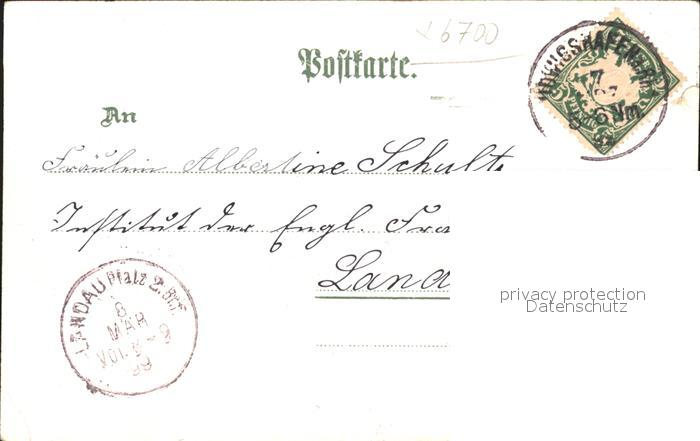 x 6700
Postkarte.
An
Fräulein Albertine Schult
Institut der Engl. Fra
Land
LANDAU Pfalz 2. Brf.
8
MÄR
VOR. 8-9
99
privacy protection
Datenschutz